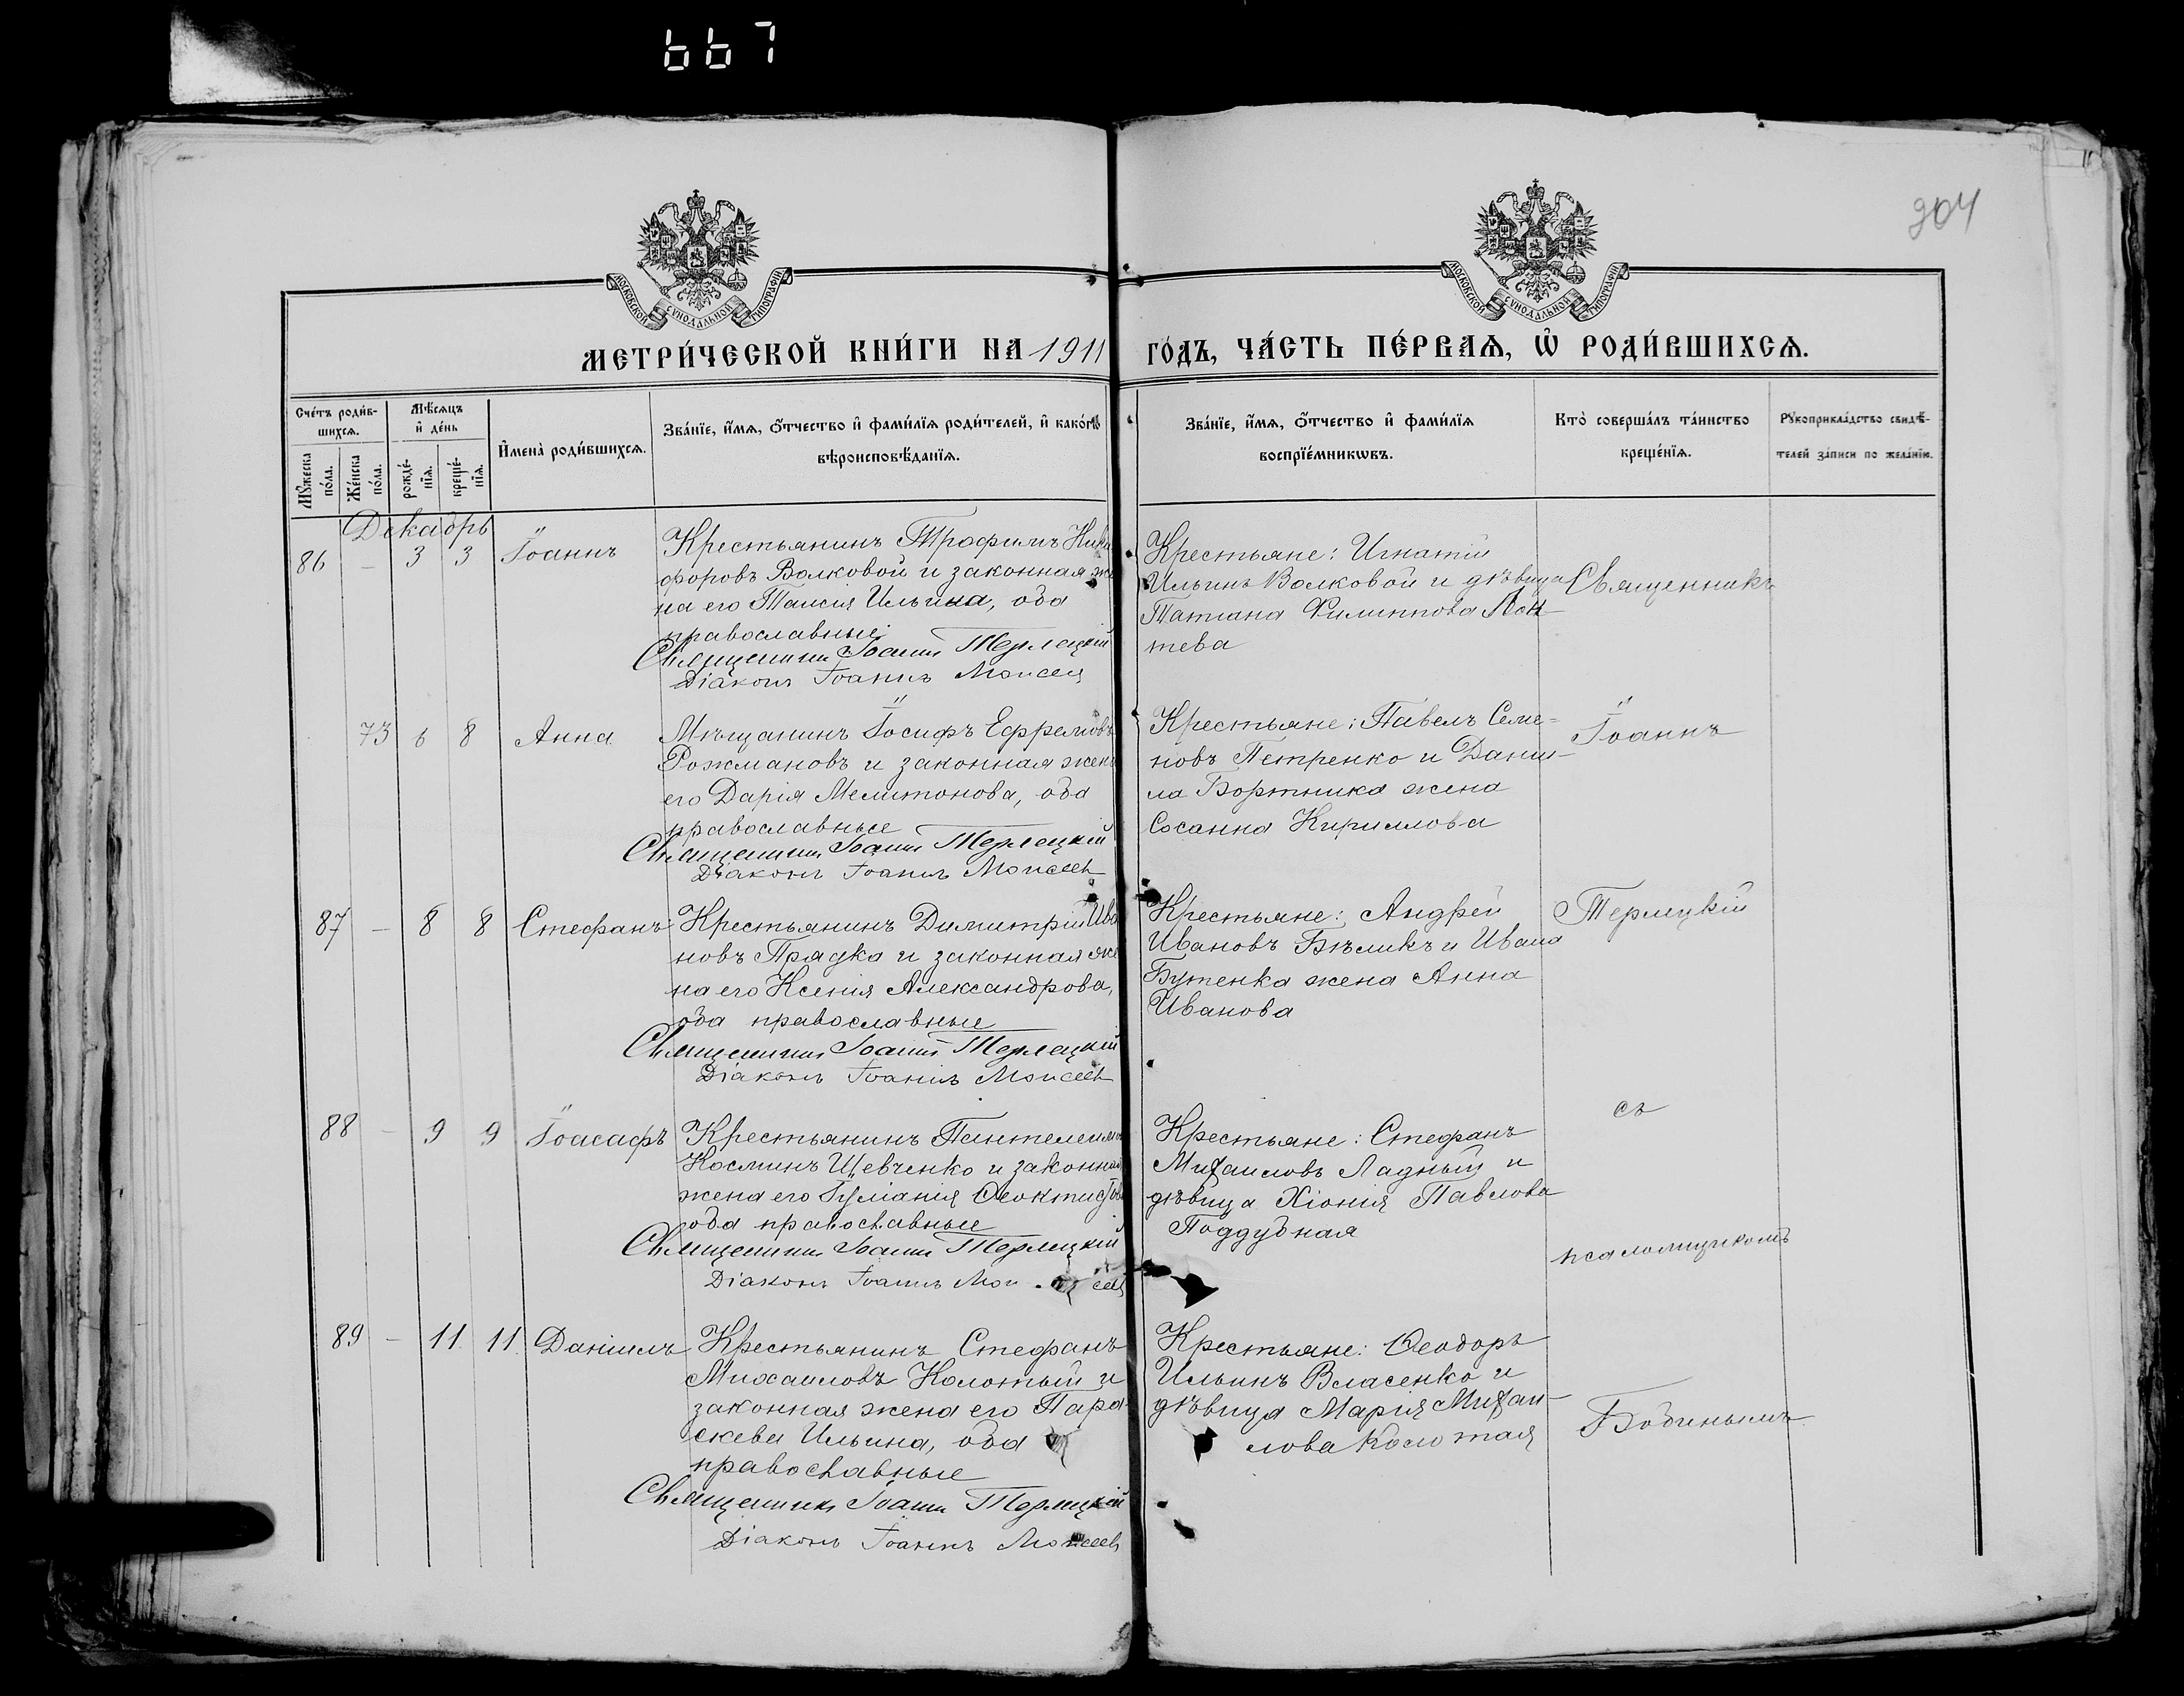 667
904
МОСКОВСКОЙ СУНОДАЛЬНОЙ ТИПОГРАФІИ
МОСКОВСКОЙ СУНОДАЛЬНОЙ ТИПОГРАФІИ
МЕТРИ́ЧЕСКОЙ КНИ́ГИ НА 1911 ГО́ДЪ, ЧА́СТЬ ПЕ́РВАѦ, Ѡ҆ РОДИ́ВШИХСѦ.
Сче́тъ роди́в-
шихсѧ.
Мꙋ́жеска по́ла.
Же́нска по́ла.
Мѣ́сѧцъ
и҆ де́нь
рожде́-
нїѧ.
креще́-
нїѧ.
И҆мена̀ роди́вшихсѧ.
Зва́нїе, и҆́мѧ, ѻ҆́тчество и҆ фами́лїѧ роди́телей, и҆ како́гѡ
вѣроисповѣ́данїѧ.
Зва́нїе, и҆́мѧ, ѻ҆́тчество и҆ фами́лїѧ
воспрїе́мникѡвъ.
Кто̀ соверша́лъ та́инство
креще́нїѧ.
Рꙋкоприкла́дство свидѣ́-
телей за́писи по жела́нїю.
Декабрь
86 — 3 3 Іоаннъ
Крестьянинъ Трофимъ Ники
форовъ Волковой и законная же
на его Таисія Ильина, оба
православные
Священникъ Іоаннъ Терлецкій
Діаконъ Іоаннъ Моисеев
Крестьяне: Игнатій
Ильинъ Волковой и дѣвица
Татіана Филиппова Лон
тева
Священникъ
73 6 8 Анна
Мѣщанинъ Іосифъ Ефремовъ
Рожмановъ и законная жена
его Дарія Мелитонова, оба
православные
Священникъ Іоаннъ Терлецкій
Діаконъ Іоаннъ Моисеев
Крестьяне: Павелъ Семе-
новъ Петренко и Дани-
ла Бортника жена
Сосанна Кириллова
Іоаннъ
87 — 8 8 Стефанъ
Крестьянинъ Димитрій Ива
новъ Прядка и законная же
на его Ксенія Александрова,
оба православные
Священникъ Іоаннъ Терлецкій
Діаконъ Іоаннъ Моисеев
Крестьяне: Андрей
Ивановъ Бѣликъ и Ивана
Бутенка жена Анна
Иванова
Терлецкій
88 — 9 9 Іоасафъ
Крестьянинъ Пантелеимо
Косминъ Шевченко и законная
жена его Іуліанія Ѳеоктистова
оба православные
Священникъ Іоаннъ Терлецкій
Діаконъ Іоаннъ Мои сеев
Крестьяне: Стефанъ
Михаиловъ Ладный и
дѣвица Хіонія Павлова
Поддубная
съ
псаломщикомъ
89 — 11 11 Даніилъ
Крестьянинъ Стефанъ
Михаиловъ Колотый и
законная жена его Пара-
скева Ильина, оба
православные
Священникъ Іоаннъ Терлецкій
Діаконъ Іоаннъ Моисеев
Крестьяне: Ѳеодоръ
Ильинъ Власенко и
дѣвица Марія Михаи-
лова Колотая
Бобинымъ